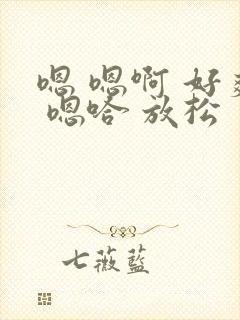 嗯 嗯啊 好
嗯哈 放松
七薇蓝